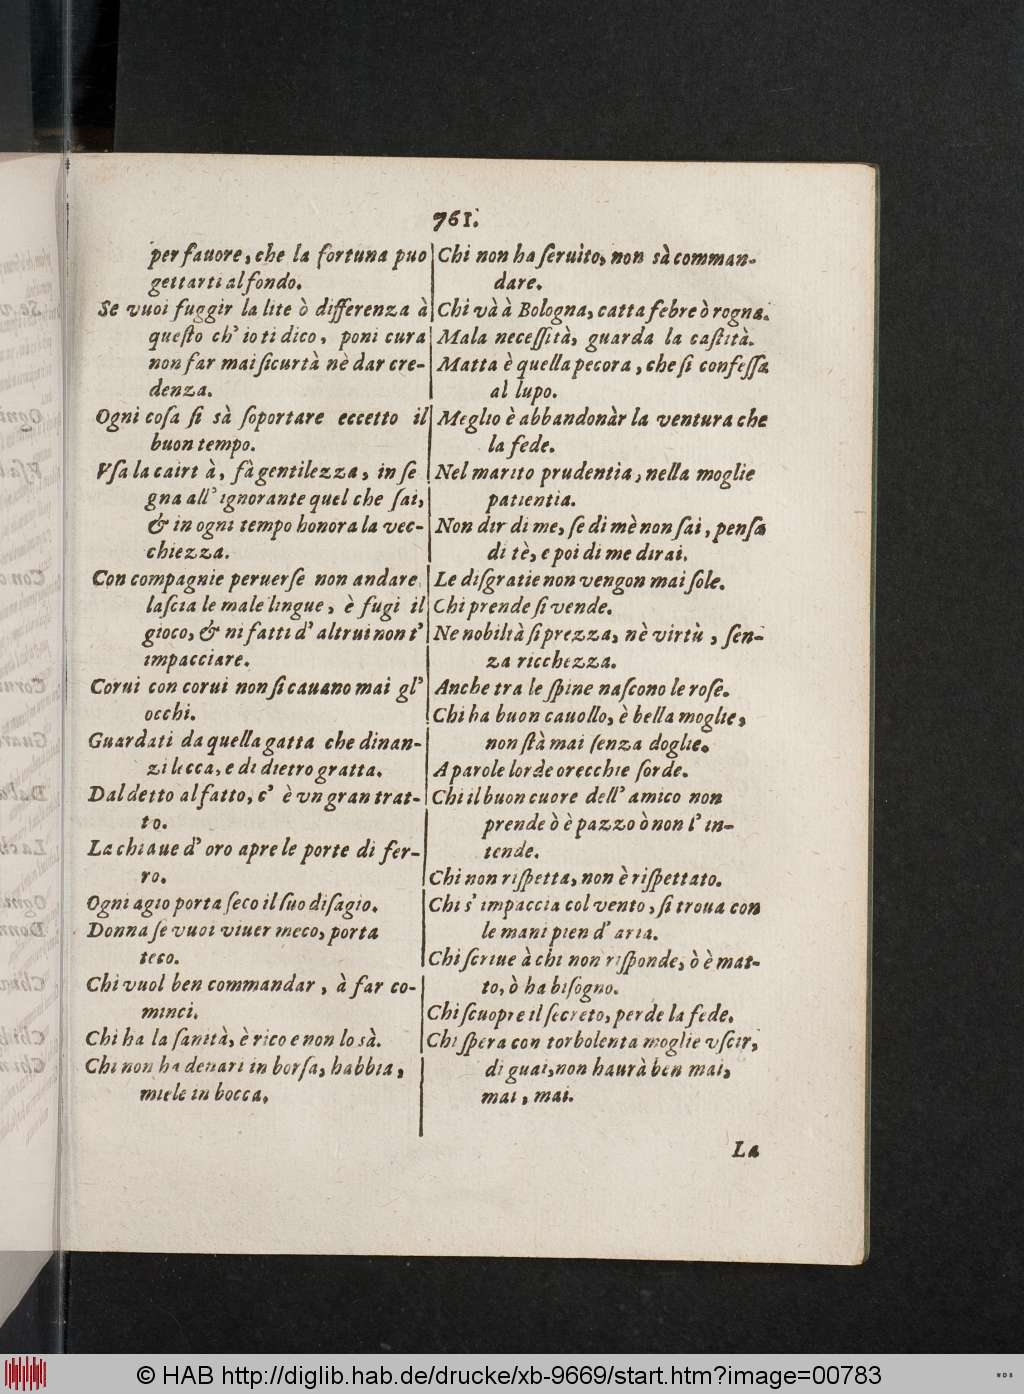 761.
per fauore, che la fortuna puo
gettarti al fondo.
Se vuoi fuggir la lite ò differenza à
queſto ch' io ti dico, poni cura
non far mai ſicurtà nè dar cre-
denza.
Ogni coſa ſi sà ſoportare eccetto il
buon tempo.
Vſa la cairt à, fà gentilezza, in ſe
gna all' ignorante quel che ſai,
& in ogni tempo honora la vec-
chiezza.
Con compagnie peruerſe non andare
laſcia le male lingue, è fugi il
gioco, & ni fatti d' altrui non t'
impacciare.
Corui con corui non ſi cauano mai gl'
occhi.
Guardati da quella gatta che dinan-
zi lecca, e di dietro gratta.
Dal detto al fatto, c' è vn gran trat-
to.
La chiaue d' oro apre le porte di fer-
ro.
Ogni agio porta ſeco il ſuo diſagio.
Donna ſe vuoi viuer meco, porta
teco.
Chi vuol ben commandar, à far co-
minci.
Chi ha la ſanità, è rico e non lo sà.
Chi non ha denari in borſa, habbia,
miele in bocca.
Chi non ha ſeruito, non sà comman-
dare.
Chi và à Bologna, catta febre ò rogna.
Mala neceſſità, guarda la caſtità.
Matta è quella pecora, che ſi confeſſa
al lupo.
Meglio è abbandonàr la ventura che
la fede.
Nel marito prudentia, nella moglie
patientia.
Non dir di me, ſe di mè non ſai, penſa
di tè, e poi di me dirai.
Le diſgratie non vengon mai ſole.
Chi prende ſi vende.
Ne nobiltà ſi prezza, nè virtù, ſen-
za ricchezza.
Anche tra le ſpine naſcono le roſe.
Chi ha buon cauollo, è bella moglie,
non ſtà mai ſenza doglie.
A parole lorde orecchie ſorde.
Chi il buon cuore dell' amico non
prende ò è pazzo ò non l' in-
tende.
Chi non riſpetta, non è riſpettato.
Chi s' impaccia col vento, ſi troua con
le mani pien d' aria.
Chi ſcriue à chi non riſponde, ò è mat-
to, ò ha biſogno.
Chi ſcuopre il ſecreto, perde la fede.
Chi ſpera con torbolenta moglie vſcir,
di guai, non haurà ben mai,
mai, mai.
La
© HAB http://diglib.hab.de/drucke/xb-9669/start.htm?image=00783